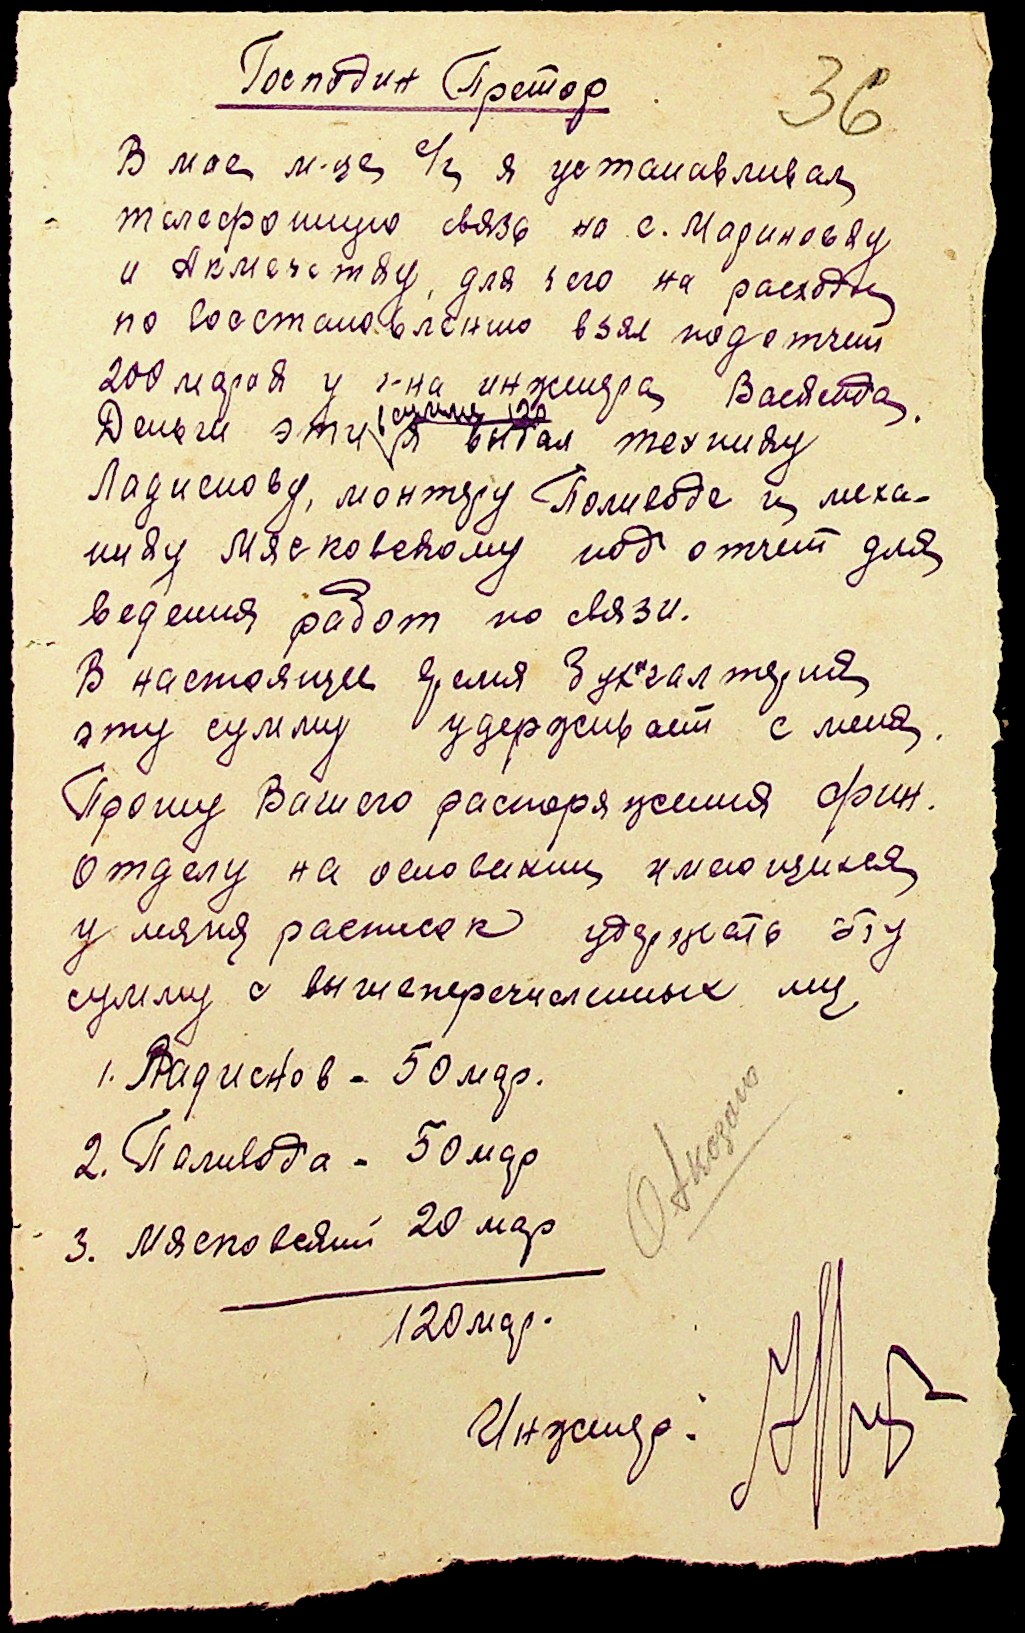 Господин Претор
36
В мае м-це с/г я устанавливал
телефонную связь на с. Мариновку
и Акмечетку, для чего на расходы
по восстановлению взял подотчет
200 марок у г-на инженера
в сумме 120
Деньги эти я выдал технику
Ладиснову, монтеру Поливоде и меха-
нику Мясковскому под отчет для
ведения работ по связи.
В настоящее время Бухгалтерия
эту сумму удерживает с меня.
Прошу Вашего распоряжения фин.
отделу на основании имеющихся
у меня расписок удержать эту
сумму с вышеперечисленных лиц
1. Ладиснов - 50 мар.
2. Поливода - 50 мар
3. Мясковский 20 мар
120 мар.
Отказано
Инженер: